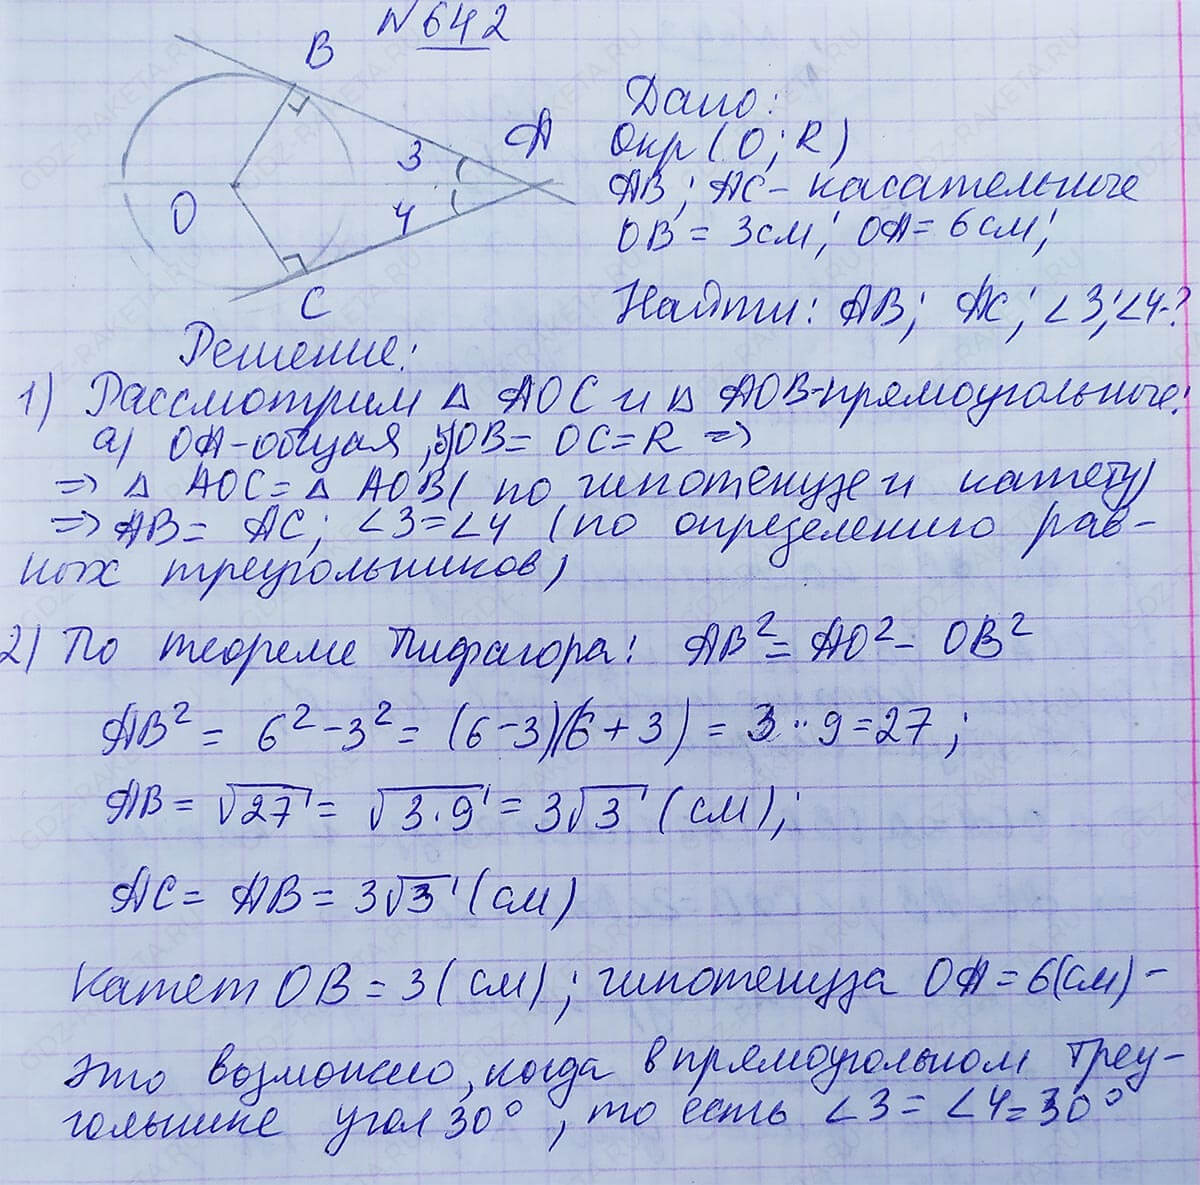 №642
B
A
3
O
4
C
Дано:
Окр(O; R)
AB; AC - касательные
OB = 3см; OA = 6см;
Найти: AB; AC; ∠3; ∠4-?
Решение:
1) Рассмотрим △ AOC и △ AOB-прямоугольные:
а) OA-общая, б) OB = OC = R =>
=> △ AOC = △ AOB (по гипотенузе и катету)
=> AB = AC; ∠3 = ∠4 (по определению рав-
ных треугольников)
2) По теореме Пифагора: AB² = AO² - OB²
AB² = 6² - 3² = (6-3)(6+3) = 3 · 9 = 27;
AB = √27 = √3·9 = 3√3 (см);
AC = AB = 3√3 (см)
Катет OB = 3 (см); гипотенуза OA = 6(см) -
это возможно, когда в прямоугольном треу-
гольнике угол 30°, то есть ∠3 = ∠4 = 30°
GDZ-RAKETA.RU